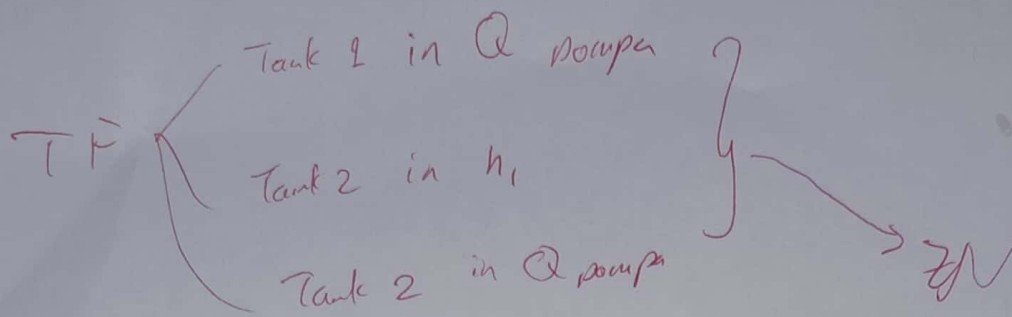 Tank 1 in Q pompa
TF
Tank 2 in h₁
Tank 2 in Q pompa
ZN